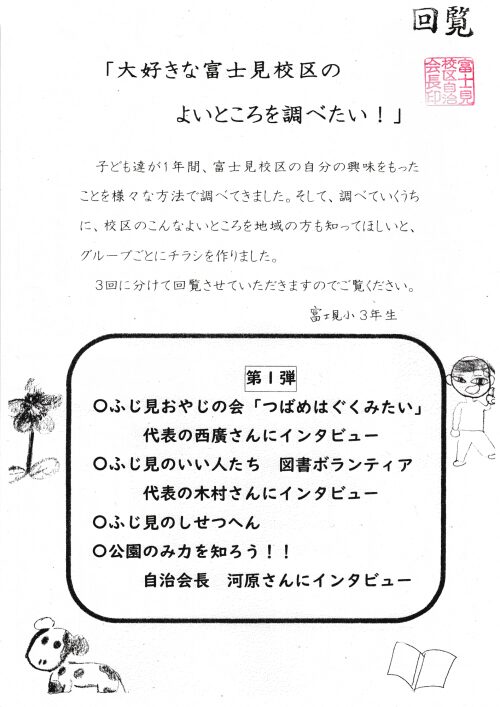 回覧
富士見
校区自治
会長印
「大好きな富士見校区の
よいところを調べたい！」
子ども達が1年間、富士見校区の自分の興味をもった
ことを様々な方法で調べてきました。そして、調べていくうち
に、校区のこんなよいところを地域の方も知ってほしいと、
グループごとにチラシを作りました。
3回に分けて回覧させていただきますのでご覧ください。
富士見小3年生
第1弾
〇ふじ見おやじの会「つばめはぐくみたい」
代表の西廣さんにインタビュー
〇ふじ見のいい人たち　図書ボランティア
代表の木村さんにインタビュー
〇ふじ見のしせつへん
〇公園のみ力を知ろう！！
自治会長　河原さんにインタビュー